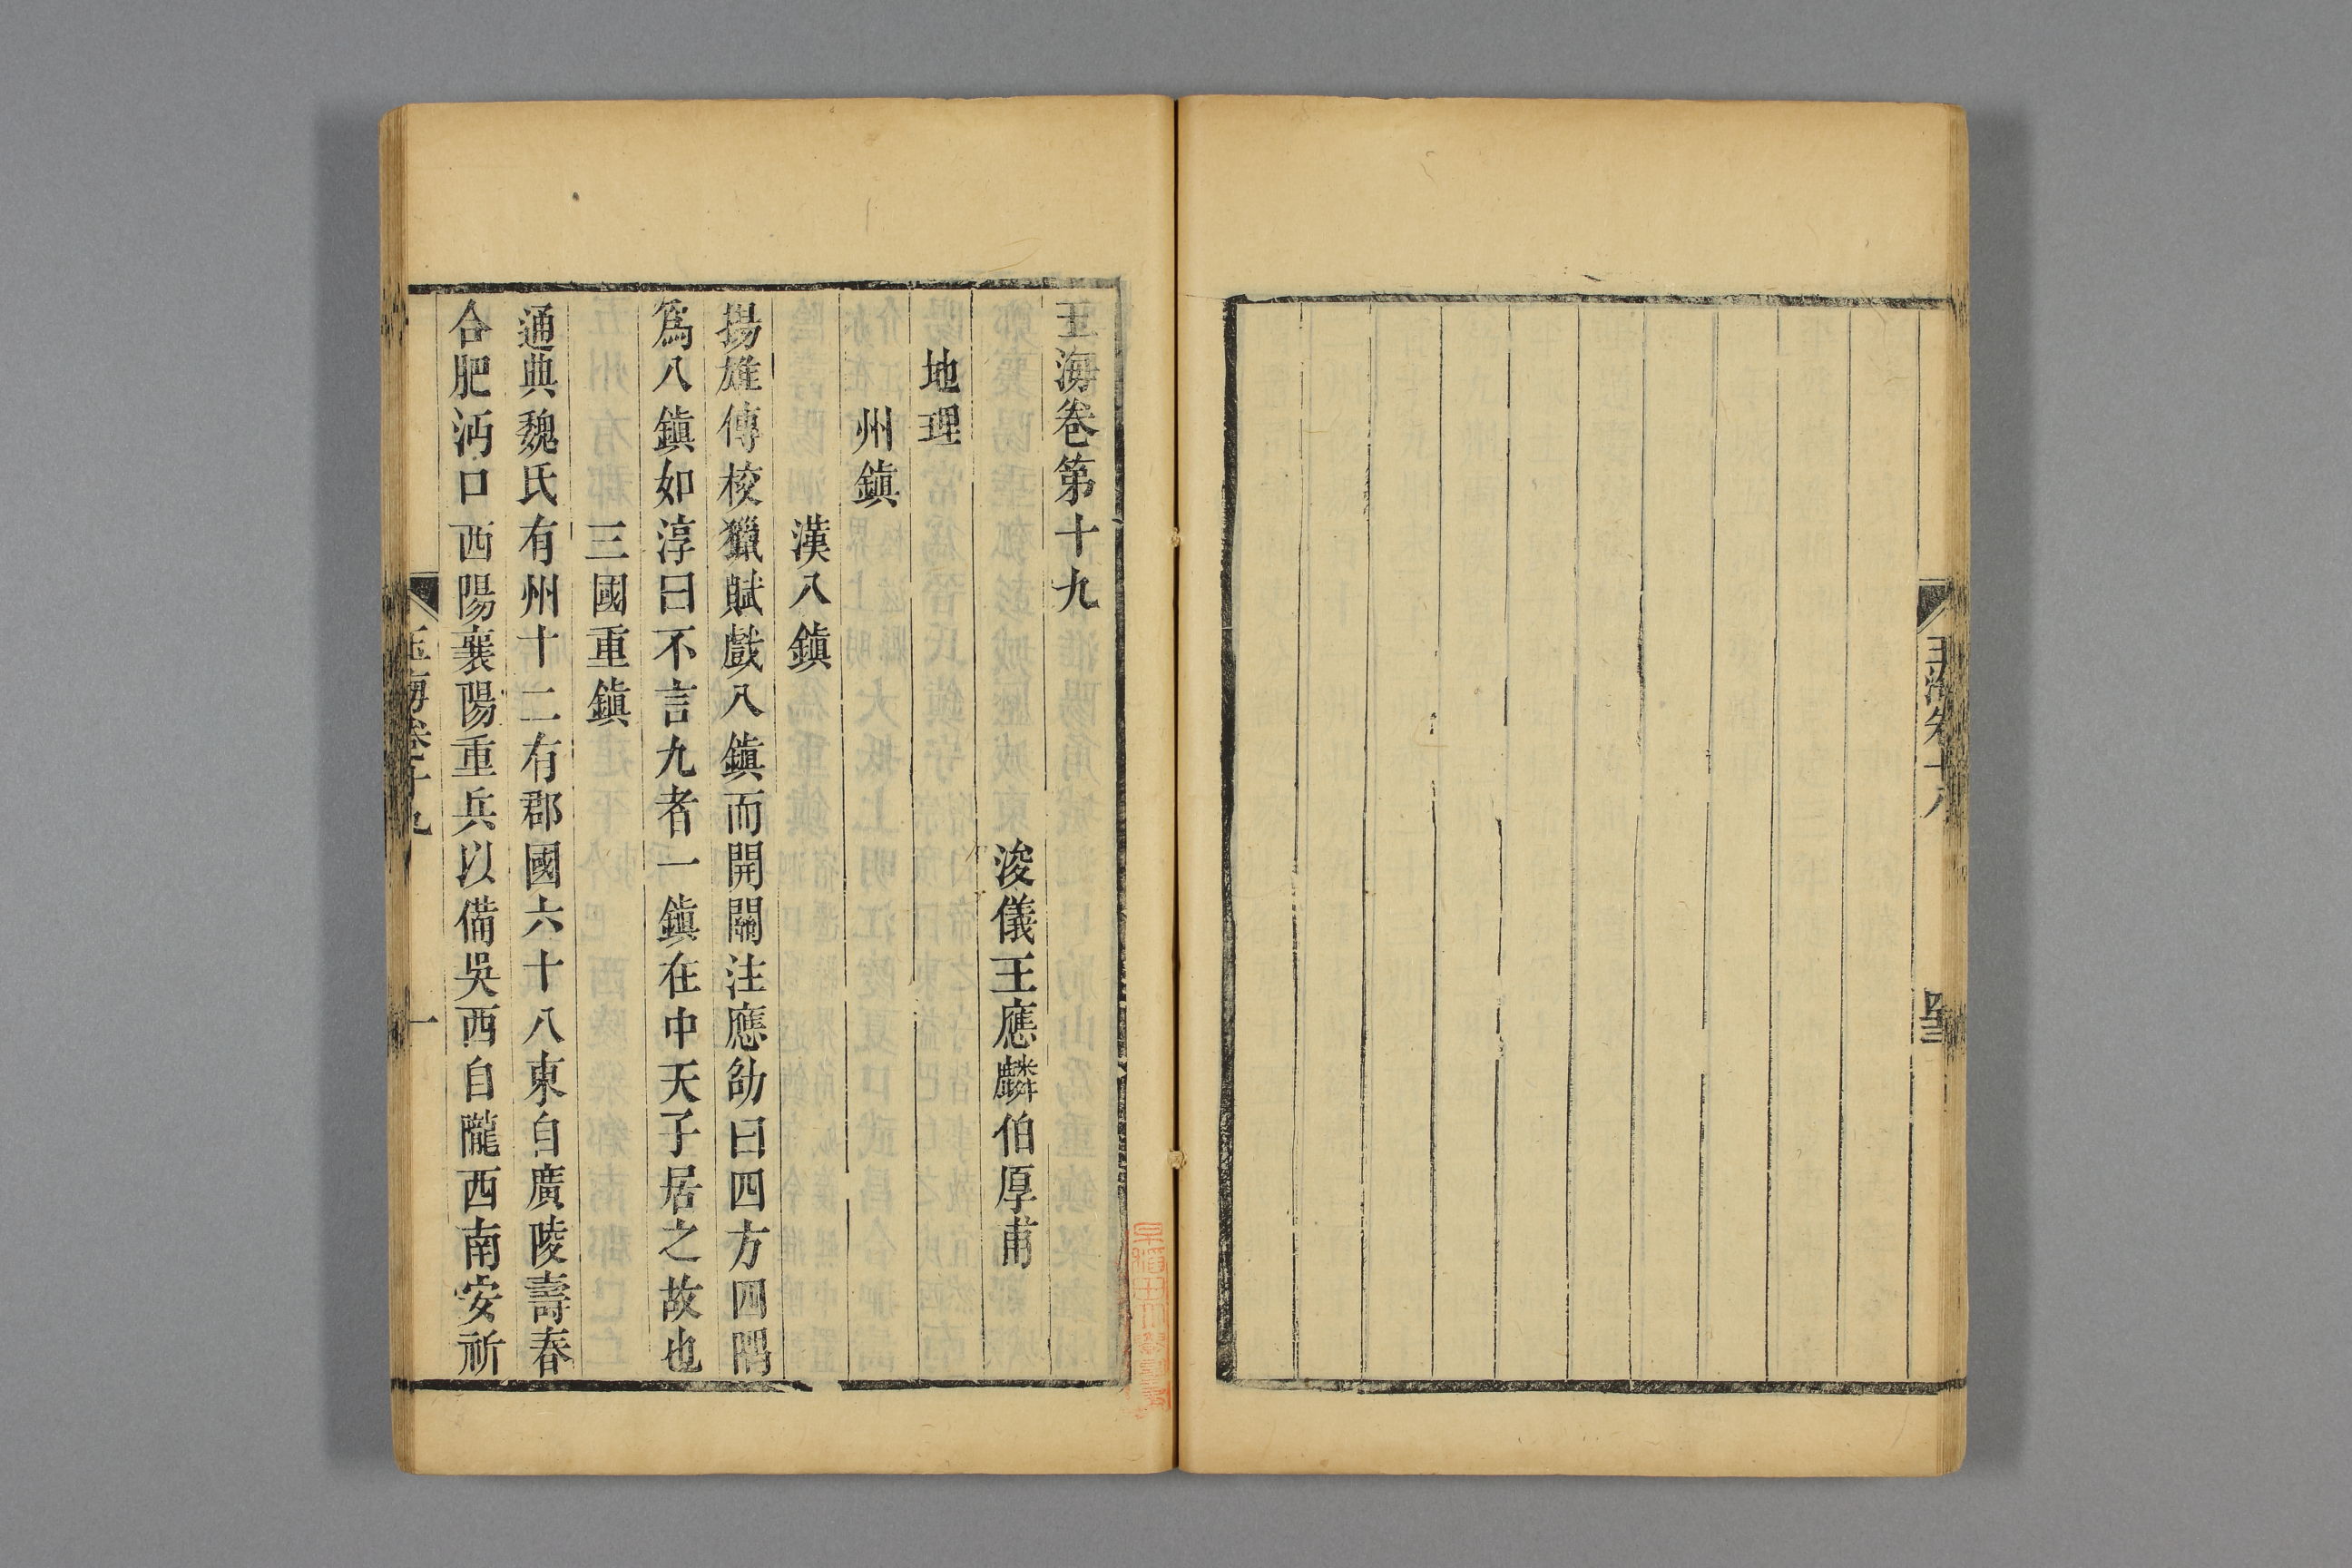 玉海卷十八
玉海卷第十九
浚儀王應麟伯厚甫
地理
州鎮
漢八鎮
揚雄傳校獵賦戲八鎮而開關注應劭曰四方四隅
爲八鎮如淳曰不言九者一鎮在中天子居之故也
三國重鎮
通典魏氏有州十二有郡國六十八東自廣陵壽春
合肥沔口西陽襄陽重兵以備吳西自隴西南安祈
玉海卷十九
一